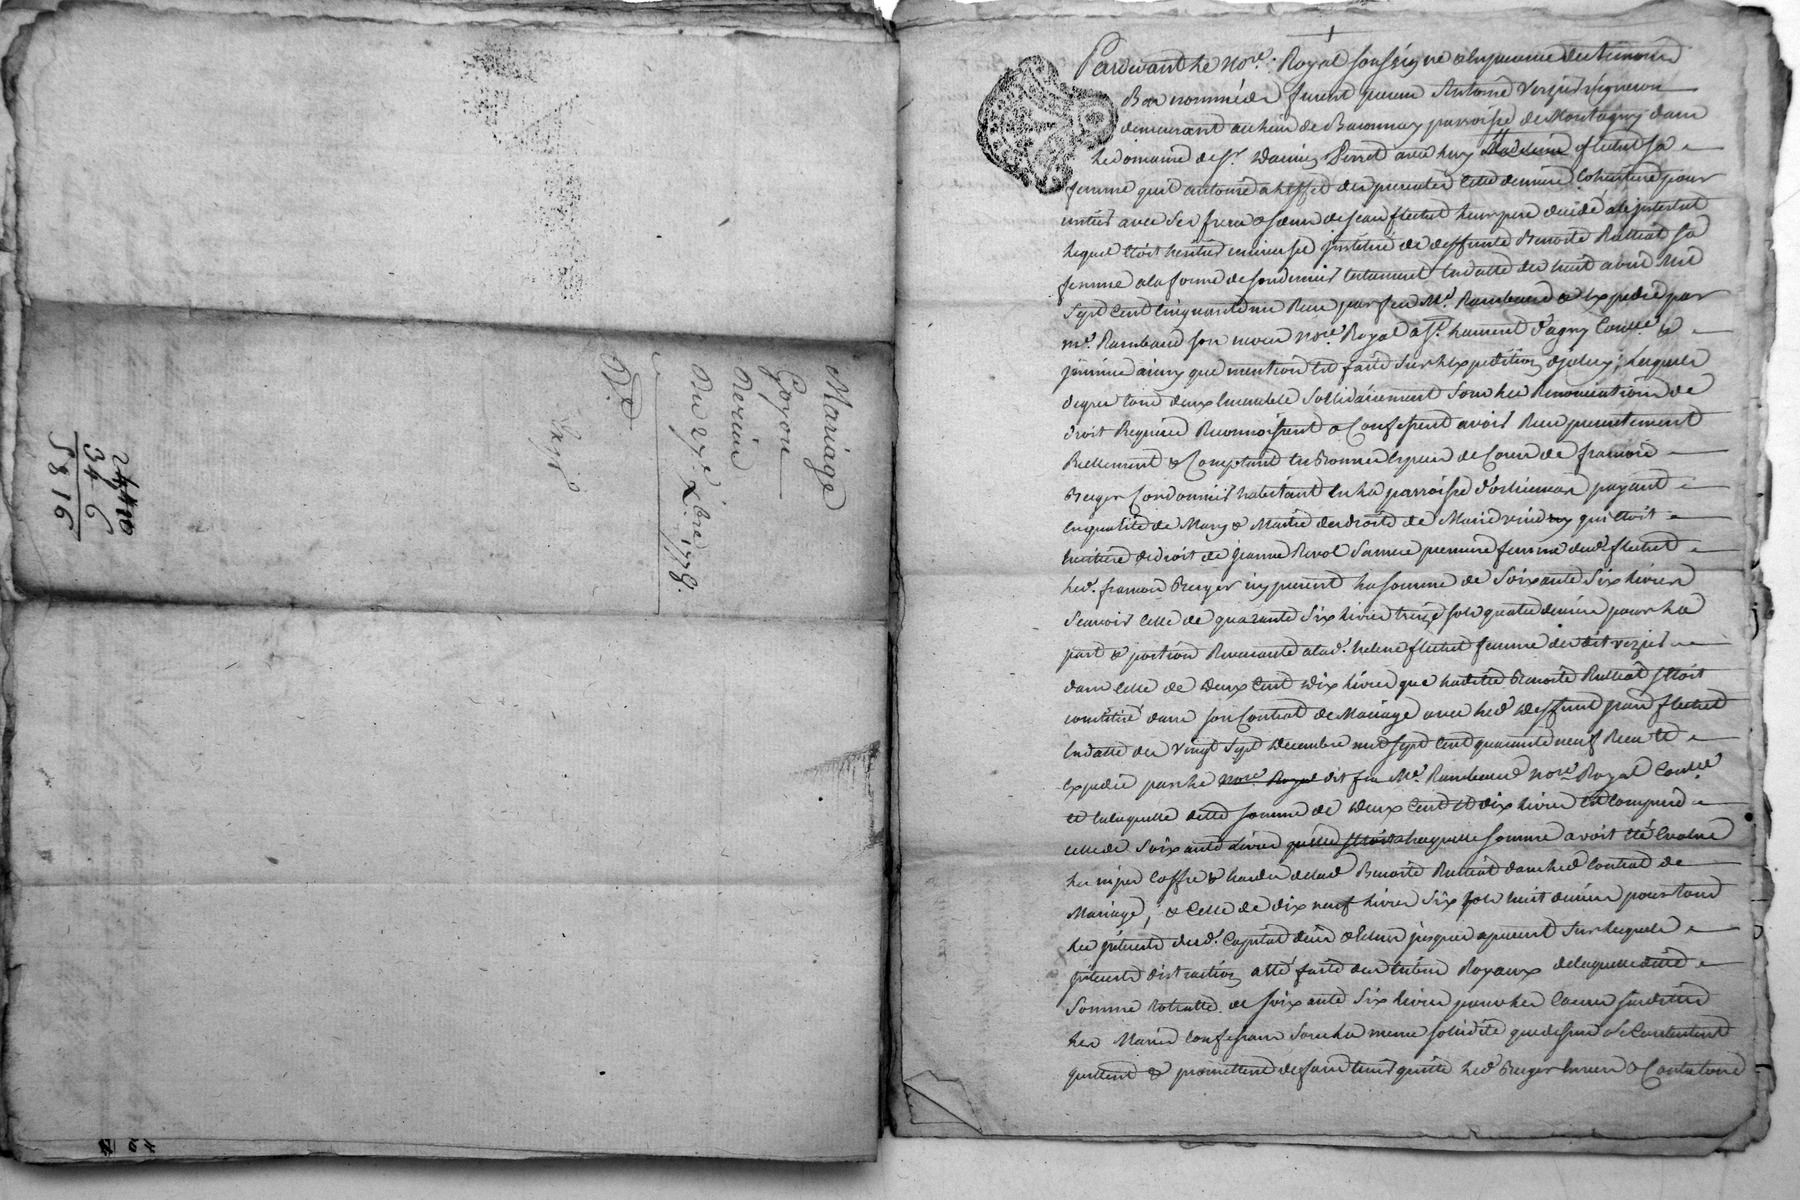 Mariage
Goyon
Nerier
Du 27e. Xbre 1778.
Exp.é
34 6
5816
Pardevant le Nore. Royal soussigné et en presence des temoins
Bas nommés furent presens Antoine Verzier vigneron
demeurant au lieu de Baronnay parroisse de Montagny dans
le domaine de Sr. Perret avec luy flechet sa
femme quil autorise a leffet des presentes cette derniere coheritiere pour
avec ses freres & soeurs de jean flechet leur pere decedé abjntestat
lequel etoit heritier universel jnstitué de deffunte Benoite Rulliat sa
femme a la forme de son dernier testament en datte du huit avril mil
sept cent cinquante un Recu par feu Me. Rambaud & expedié par
Me. Rambaud son neveu Nore. Royal a St. Laurent d'agny &
ainsy que mention est faite sur lexpedition lesquels
de gré tous deux ensemble sollidairement sous les Renonciations de
droit Requises Reconnoissent & Confessent avoir Recu presentement
Reellement & Comptant en Bonnes especes de Cours de francois
Berger Cordonnier habitant en la parroisse d'orlienas payant
en qualité de Mary & Maitre des droits de Marie qui etoit
heritiere de droit de jeanne Rivol sa mere premiere femme dud. flechet
led. francois Berger icy present la somme de soixante six livres
scavoir celle de quarante six livres treize sols quatre deniers pour la
part & portion Revenante a lad. helene flechet femme du dit verzier
dans celle de deux cent dix livres que ladite Benoite Rulliat setoit
constitué dans son Contrat de Mariage avec led. deffunt jean flechet
en datte du vingt sept decembre mil sept cent quarante neuf Recu et
expedié par le Nore Royal dit feu Me. Rambaud Nore. Royal
et en laquelle dette somme de deux cent et dix livres est comprise
celle de soixante livres a laquelle somme avoit eté evalué
les nipes coffre & hardes de lad. Benoite Rulliat dans led. Contrat de
Mariage, & celle de dix neuf livres six sols huit deniers pour tous
les jnterets dud. Capital deus & echus jusques a present sur lesquels
jnterets distraction a eté faite des Royaux de laquelle dite
somme totalle de soixante six livres pour les causes susdittes
les Mariés Verzier sous la meme soliditè que dessus se Contentent
quittent & promettent de faire tenir quitte led. Berger envers & Contre tous